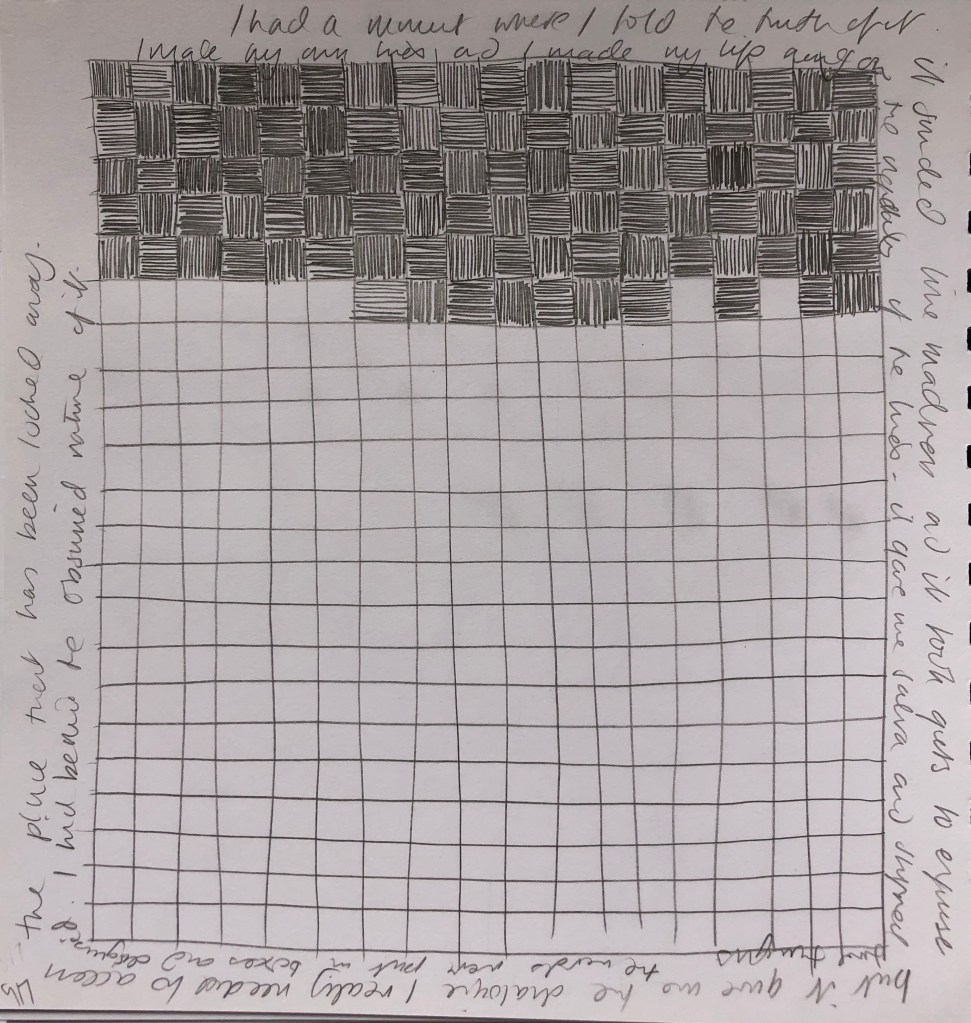 I had a moment where I told the truth of it
it sounded like madness and it took guts to expose
but it gave me the dialogue I really needed to access
the place that has been locked away.
I made my own lines, and I made my
the of the. it gave me saliva and
the words were put in boxes and disguised
. I had become the obscured nature of it.